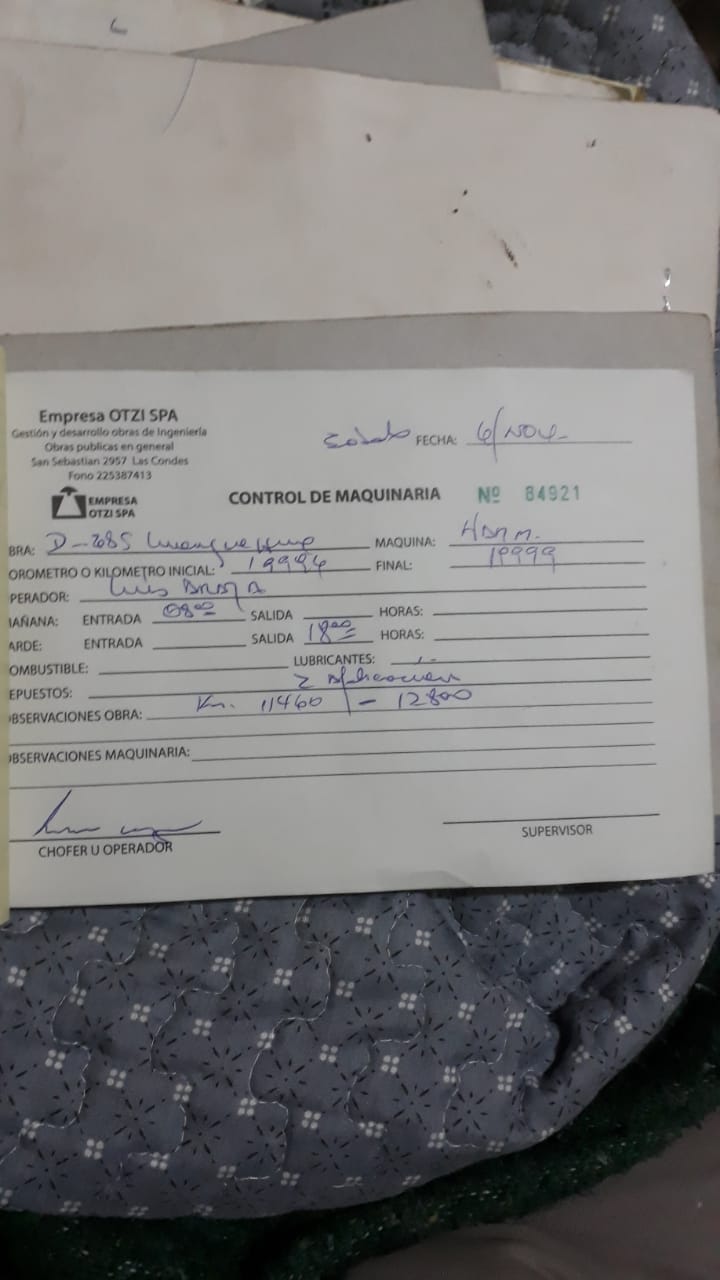 Empresa OTZI SPA
Gestión y desarrollo obras de Ingeniería
Obras publicas en general
San Sebastian 2957 Las Condes
Fono 225387413
EMPRESA
OTZI SPA
FECHA: 6/NOV.
CONTROL DE MAQUINARIA Nº 84921
BRA: D-2085 MAQUINA:
OROMETRO O KILOMETRO INICIAL: 19994 FINAL: 19999
PERADOR: Luis
AÑANA: ENTRADA 08:00 SALIDA HORAS:
ARDE: ENTRADA SALIDA 18:00 HORAS:
OMBUSTIBLE: LUBRICANTES:
EPUESTOS: 2
BSERVACIONES OBRA: Km. 11460 - 12800
BSERVACIONES MAQUINARIA:
CHOFER U OPERADOR
SUPERVISOR